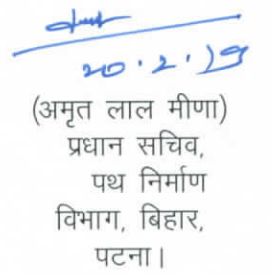 20.2.19
(अमृत लाल मीणा)
प्रधान सचिव,
पथ निर्माण
विभाग, बिहार,
पटना।